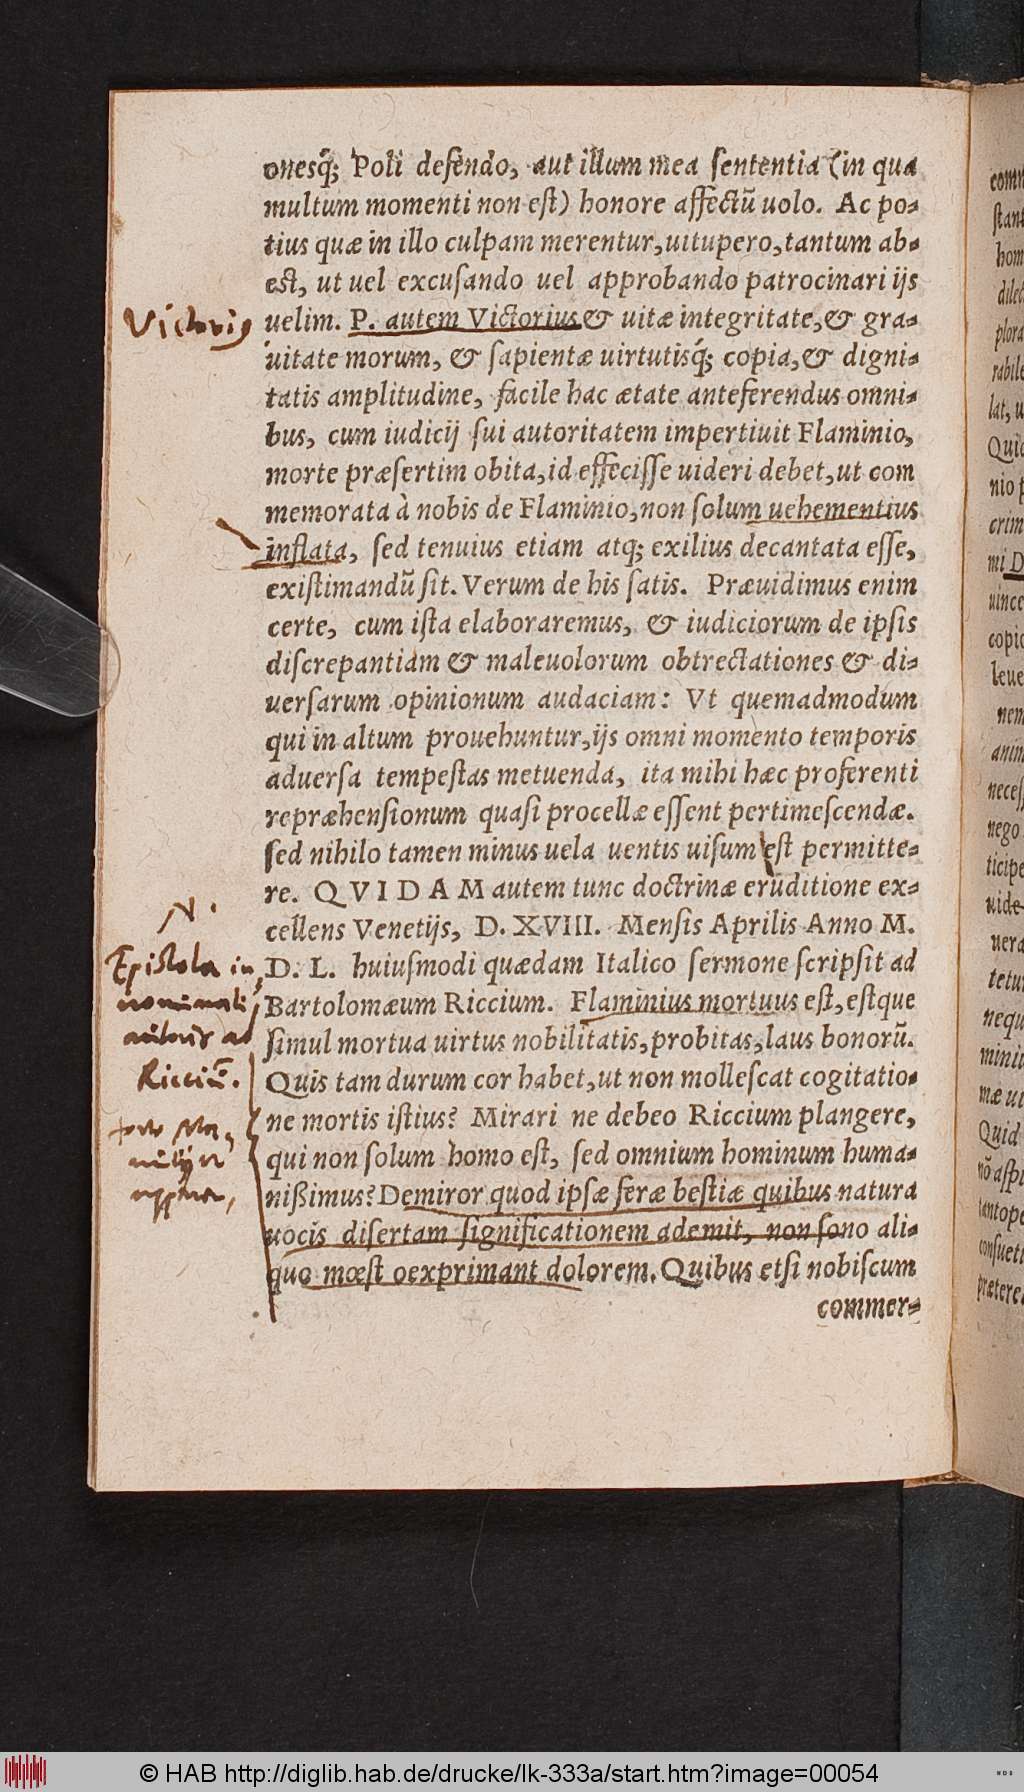 onesq́; Poli defendo, aut illum mea ſententia (in qua
multum momenti non eſt) honore affectū uolo. Ac po-
tius quæ in illo culpam merentur, uitupero, tantum ab-
est, ut uel excuſando uel approbando patrocinari ijs
Victorius
uelim. P. autem Victorius & uitæ integritate, & gra-
uitate morum, & ſapientæ uirtutisq́; copia, & digni-
tatis amplitudine, facile hac ætate anteferendus omni-
bus, cum iudicij ſui autoritatem impertiuit Flaminio,
morte præſertim obita, id effeciſſe uideri debet, ut com
memorata à nobis de Flaminio, non ſolum uehementius
inflata, ſed tenuius etiam atq; exilius decantata eſſe,
exiſtimandū ſit. Verum de his ſatis. Præuidimus enim
certe, cum iſta elaboraremus, & iudiciorum de ipſis
diſcrepantiam & maleuolorum obtrectationes & di-
uerſarum opinionum audaciam: Vt quemadmodum
qui in altum prouehuntur, ijs omni momento temporis
aduerſa tempeſtas metuenda, ita mihi hæc proferenti
repræhenſionum quaſi procellæ eſſent pertimeſcendæ.
ſed nihilo tamen minus uela uentis uiſum eſt permitte-
re. QVIDAM autem tunc doctrinæ eruditione ex-
cellens Venetijs, D. XVIII. Menſis Aprilis Anno M.
N.
Epistola in
nominati
autoris ad
Ricciū.
D. L. huiuſmodi quædam Italico ſermone ſcripſit ad
Bartolomæum Riccium. Flaminius mortuus eſt, eſtque
ſimul mortua uirtus nobilitatis, probitas, laus bonorū.
Quis tam durum cor habet, ut non molleſcat cogitatio-
ne mortis iſtius? Mirari ne debeo Riccium plangere,
qui non ſolum homo eſt, ſed omnium hominum huma-
nißimus? Demiror quod ipſæ feræ beſtiæ quibus natura
uocis diſertam ſignificationem ademit, non ſono ali-
quo mœſt oexprimant dolorem. Quibus etſi nobiſcum
commer-
© HAB http://diglib.hab.de/drucke/lk-333a/start.htm?image=00054